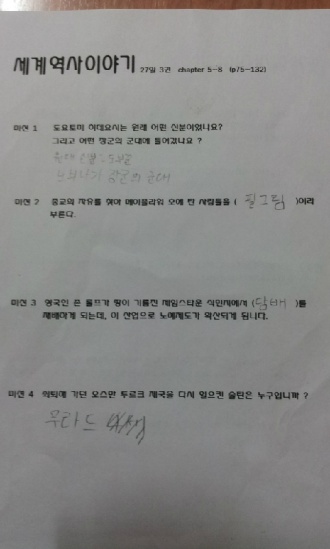 세계역사이야기 27일 3권 chapter 5-8 (p75-132)
미션 1 도요토미 히데요시는 원래 어떤 신분이었나요?
그리고 어떤 장군의 군대에 들어갔나요 ?
장군의 군대
미션 2 종교의 자유를 찾아 메이플라워 호에 탄 사람들을 ( 필그림 )이라
부른다.
미션 3 영국인 존 롤프가 땅이 기름진 제임스타운 식민지에서 (담배)를
재배하게 되는데, 이 산업으로 노예제도가 확산되게 됩니다.
미션 4 쇠퇴해 가던 오스만 투르크 제국을 다시 일으킨 술탄은 누구입니까 ?
무라드